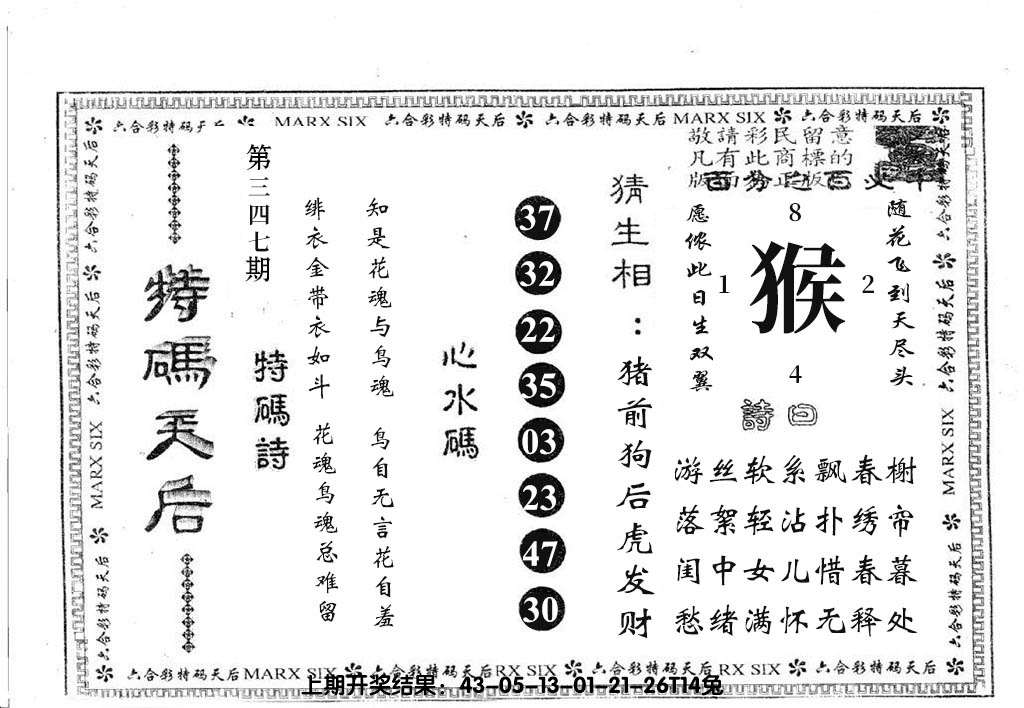 六合彩特码天后 MARX SIX 六合彩特码天后 六合彩特码天后 MARX SIX 六合彩特码天后
敬請彩民留意
凡有此商標的
特碼天后
第三四七期
特碼詩
绯衣金带衣如斗 花魂鸟魂总难留
知是花魂与鸟魂 鸟自无言花自羞
心水碼
37
32
22
35
03
23
47
30
猜生相：猪前狗后虎发财
愿侬此日生双翼
8
1 猴 2
4
随花飞到天尽头
詩曰
游丝软系飘春榭
落絮轻沾扑绣帘
闺中女儿惜春暮
愁绪满怀无释处
六合彩特码天后 MARX SIX 六合彩特码天后 六合彩特码天后
六合彩特码天后 MARX SIX 六合彩特码天后 六合彩特码天后
六合彩特码天后MARX SIX 六合彩特码天后RX SIX 六合彩特码天后RX SIX 六合彩特码天后
上期开奖结果：43-05-13-01-21-26T14兔